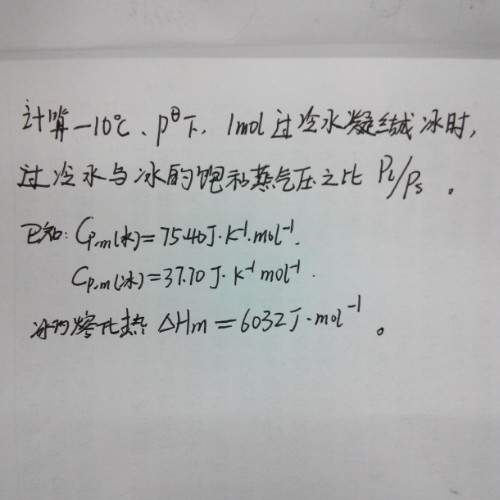 计算-10℃、p^θ下，1mol过冷水凝结成冰时，
过冷水与冰的饱和蒸气压之比 Pl/Ps 。
已知: Cp,m(水)=75.40J·K⁻¹·mol⁻¹.
Cp,m(冰)=37.70 J·K⁻¹ mol⁻¹.
冰的熔化热 ΔHm=6032J·mol⁻¹。